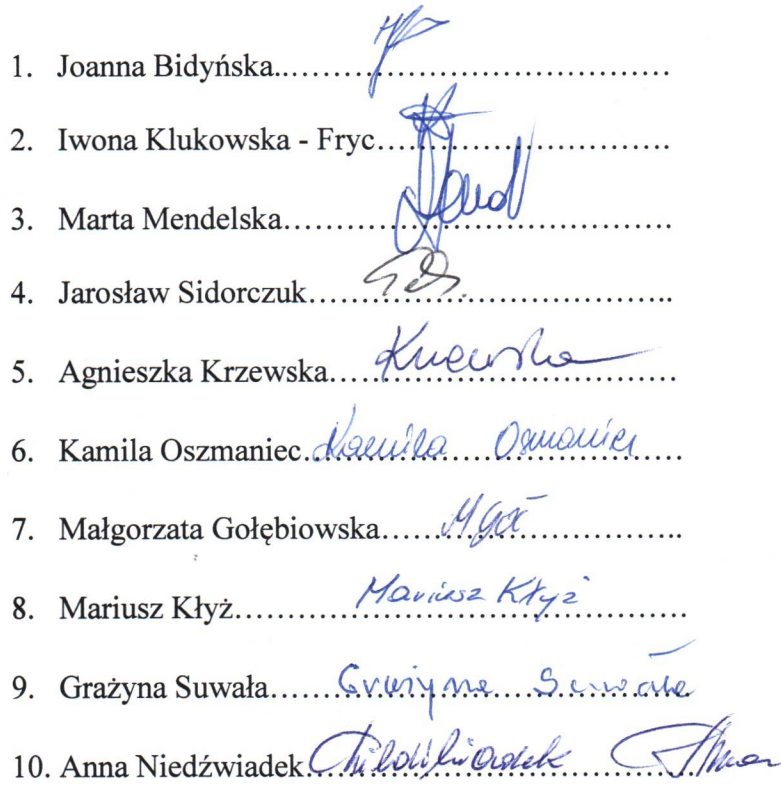 1. Joanna Bidyńska..……………………………………
2. Iwona Klukowska - Fryc……………………………
3. Marta Mendelska……………………………………
4. Jarosław Sidorczuk…………………………………..
5. Agnieszka Krzewska…………………………………
6. Kamila Oszmaniec Kamila Oszmaniec
7. Małgorzata Gołębiowska…… MGoł ……………..
8. Mariusz Kłyż…… Mariusz Kłyż …………
9. Grażyna Suwała…… Grażyna Suwała
10. Anna Niedźwiadek Niedźwiadek Anna